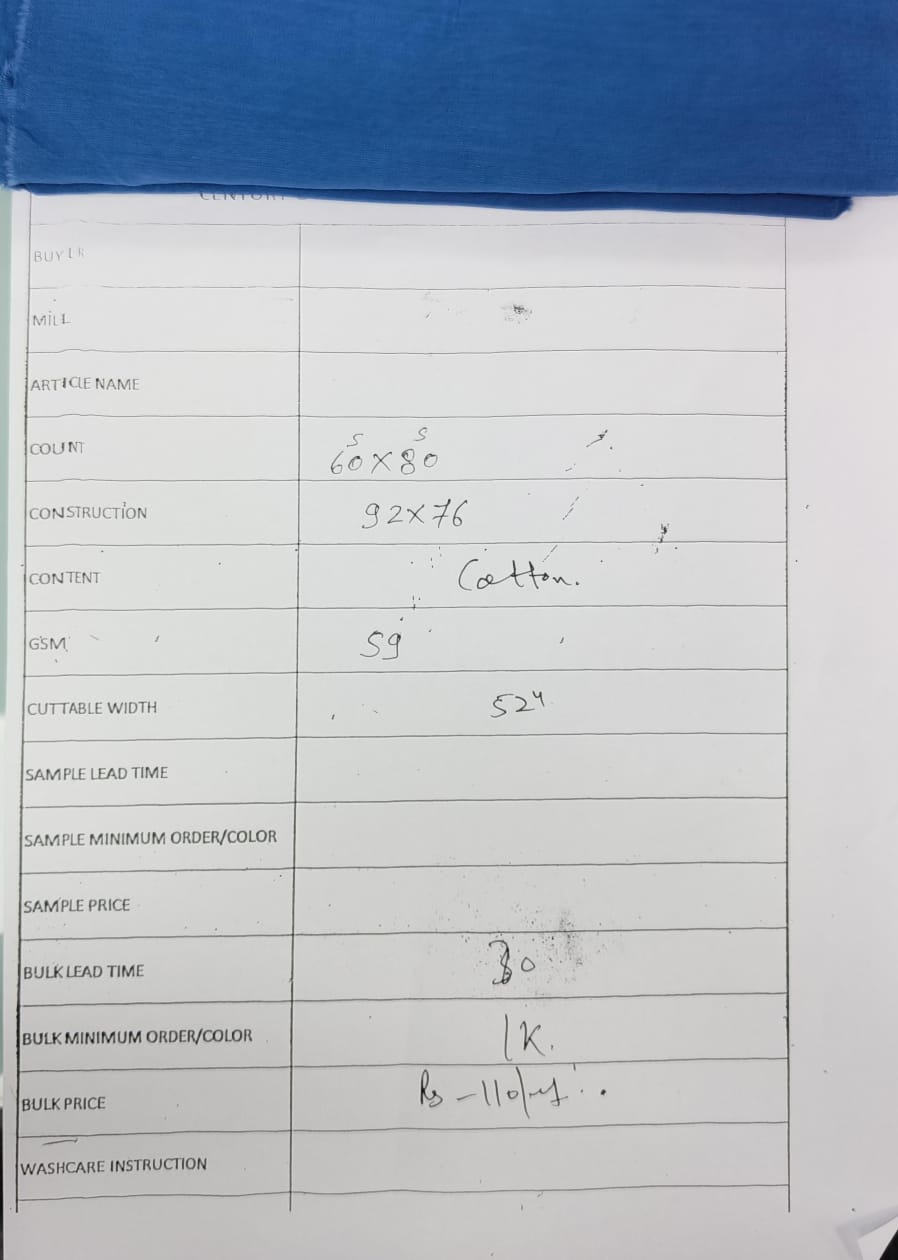 BUYER
MILL
ARTICLE NAME
COUNT 60s X 80s
CONSTRUCTION 92X76
CONTENT Cotton.
GSM 59
CUTTABLE WIDTH 52"
SAMPLE LEAD TIME
SAMPLE MINIMUM ORDER/COLOR
SAMPLE PRICE
BULK LEAD TIME 30
BULK MINIMUM ORDER/COLOR 1K.
BULK PRICE Rs - 110/
WASHCARE INSTRUCTION